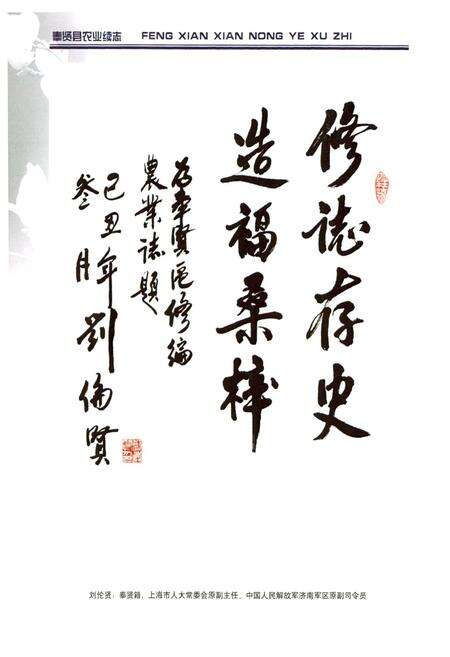 奉贤县农业续志 FENG XIAN XIAN NONG YE XU ZHI
修誌存史
造福桑梓
为奉贤区修编
農業誌題
己丑年劉倫賢
叁月
刘伦贤：奉贤籍，上海市人大常委会原副主任、中国人民解放军济南军区原副司令员